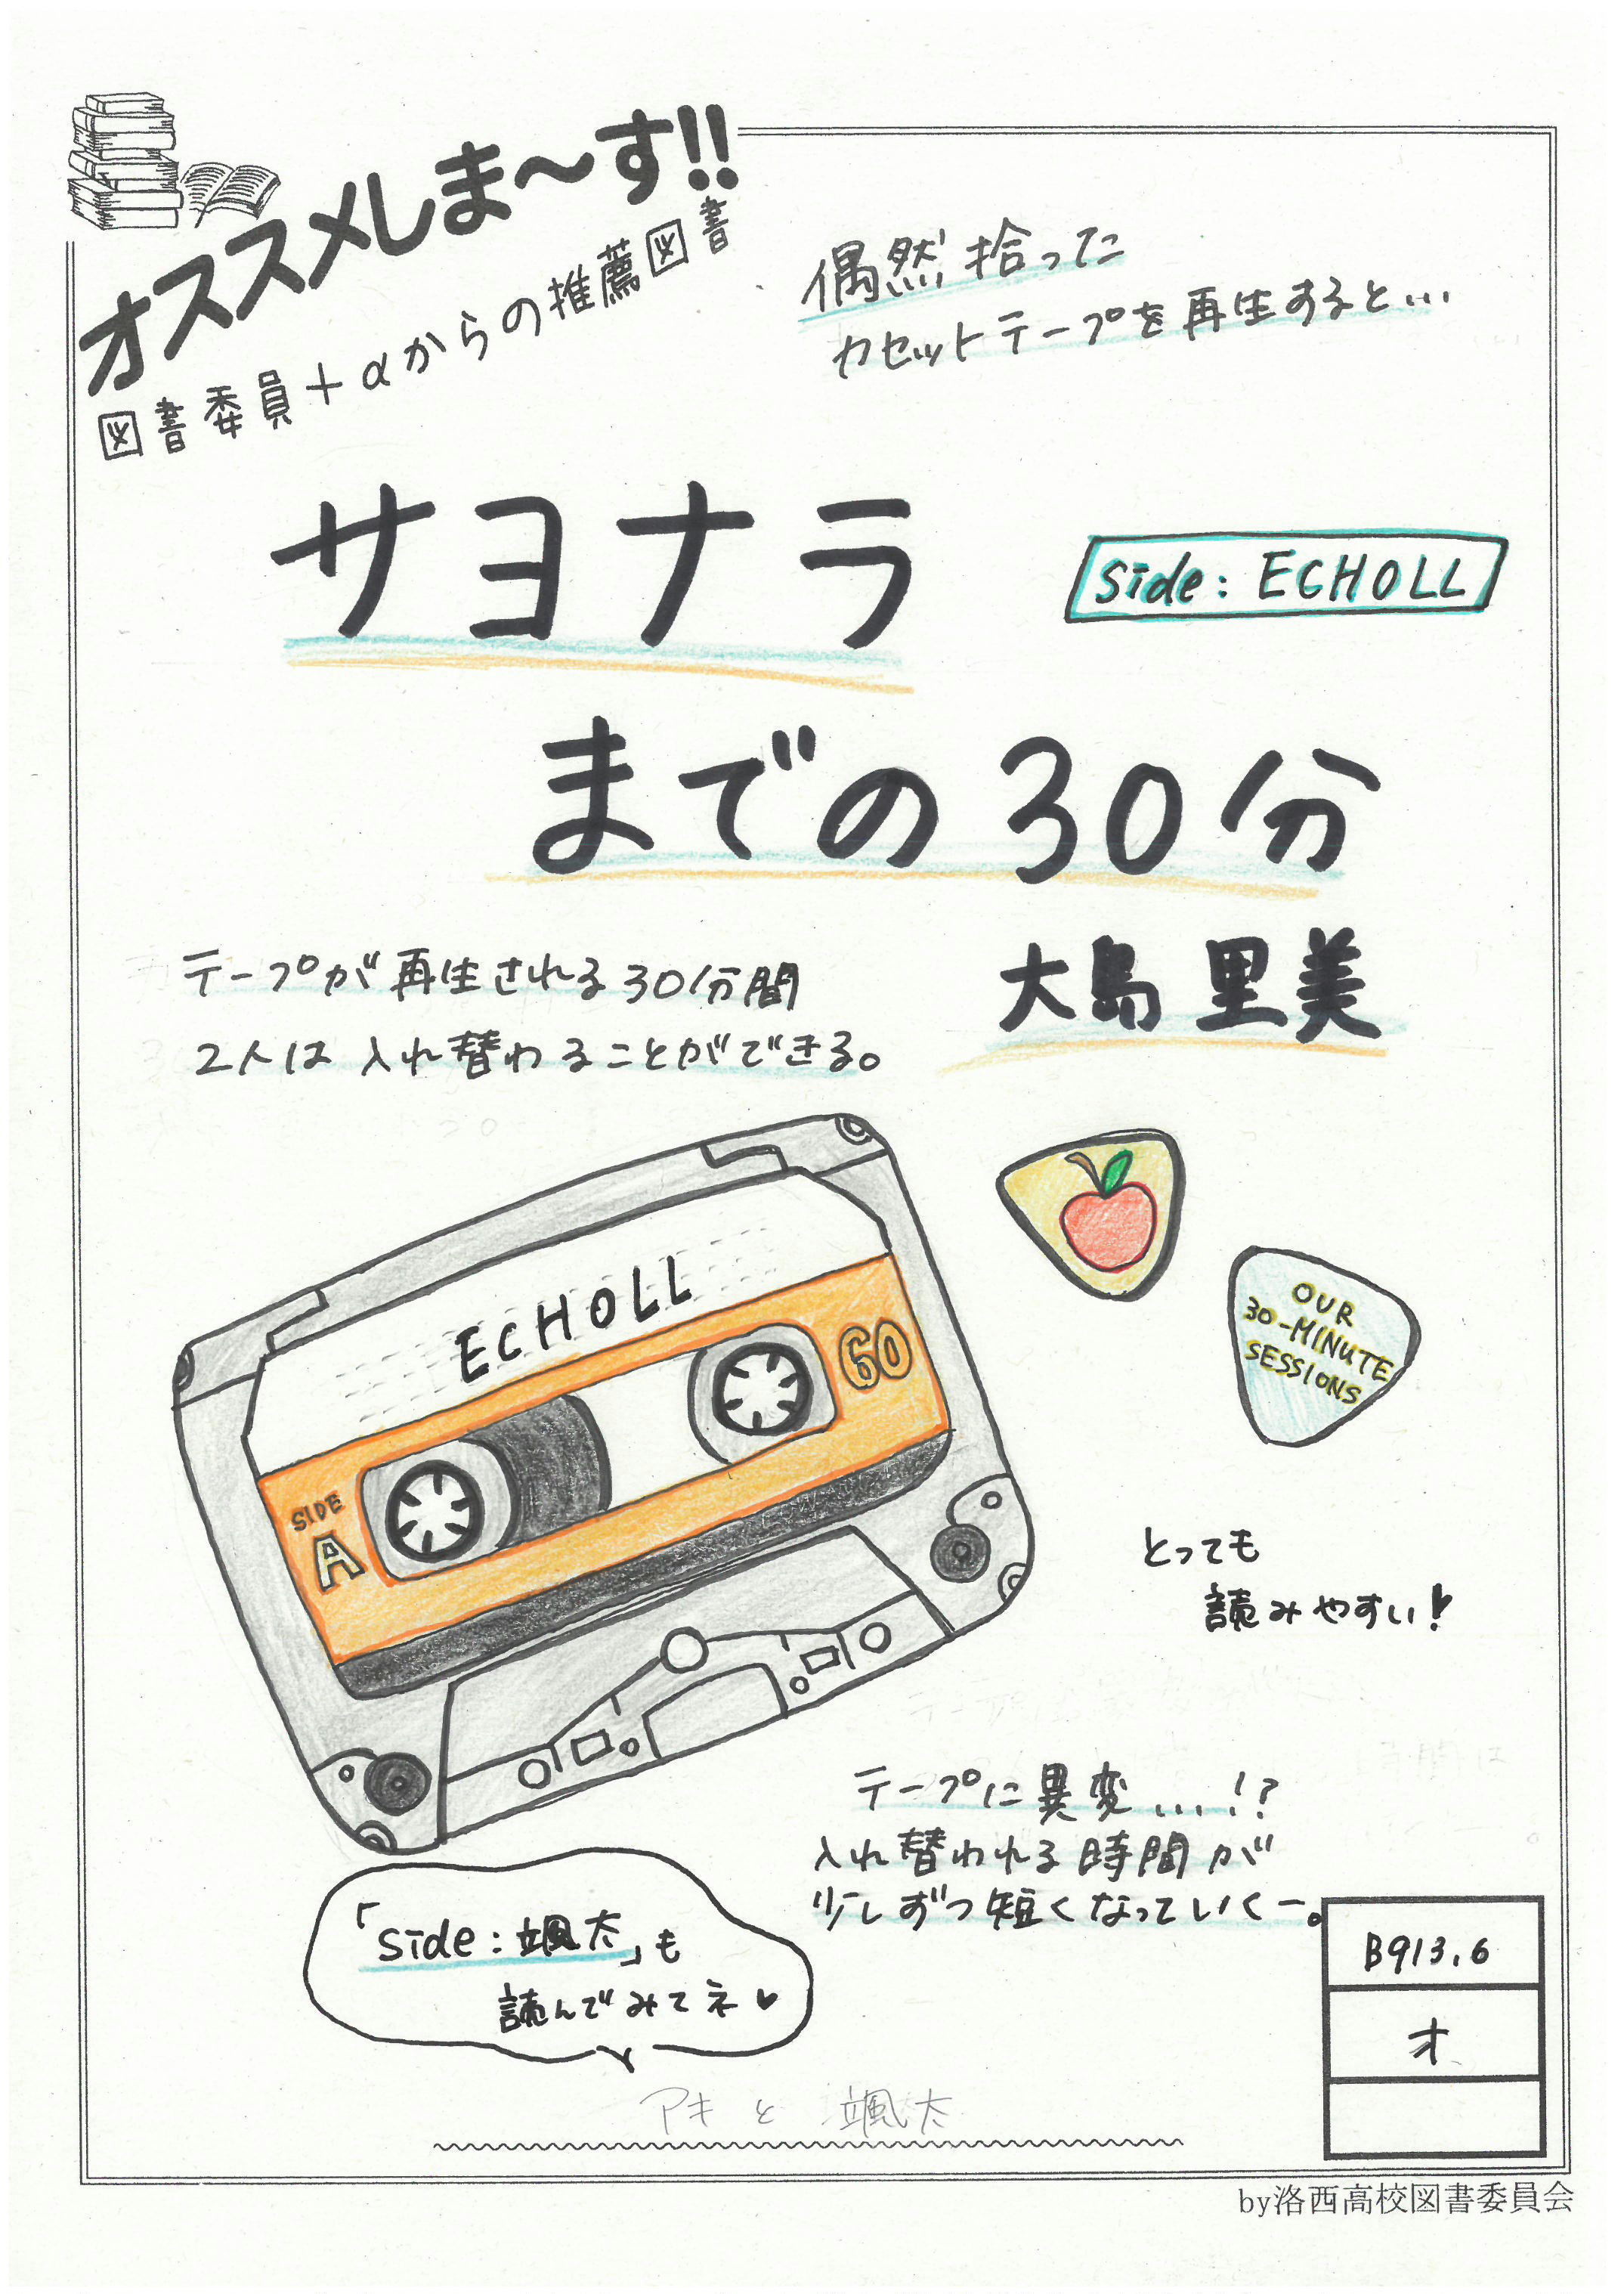 オススメしま～す!!
図書委員＋αからの推薦図書
偶然拾った
カセットテープを再生すると…
サヨナラ
side: ECHOLL
までの30分
大島里美
テープが再生される30分間
2人は入れ替わることができる。
ECHOLL
60
SIDE
A
OUR
30-MINUTE
SESSIONS
とっても
読みやすい!
テープに異変…!?
入れ替われる時間が
少しずつ短くなっていくー。
「side:颯太」も
読んでみてネ♥
B913.6
オ
アキと颯太
by洛西高校図書委員会